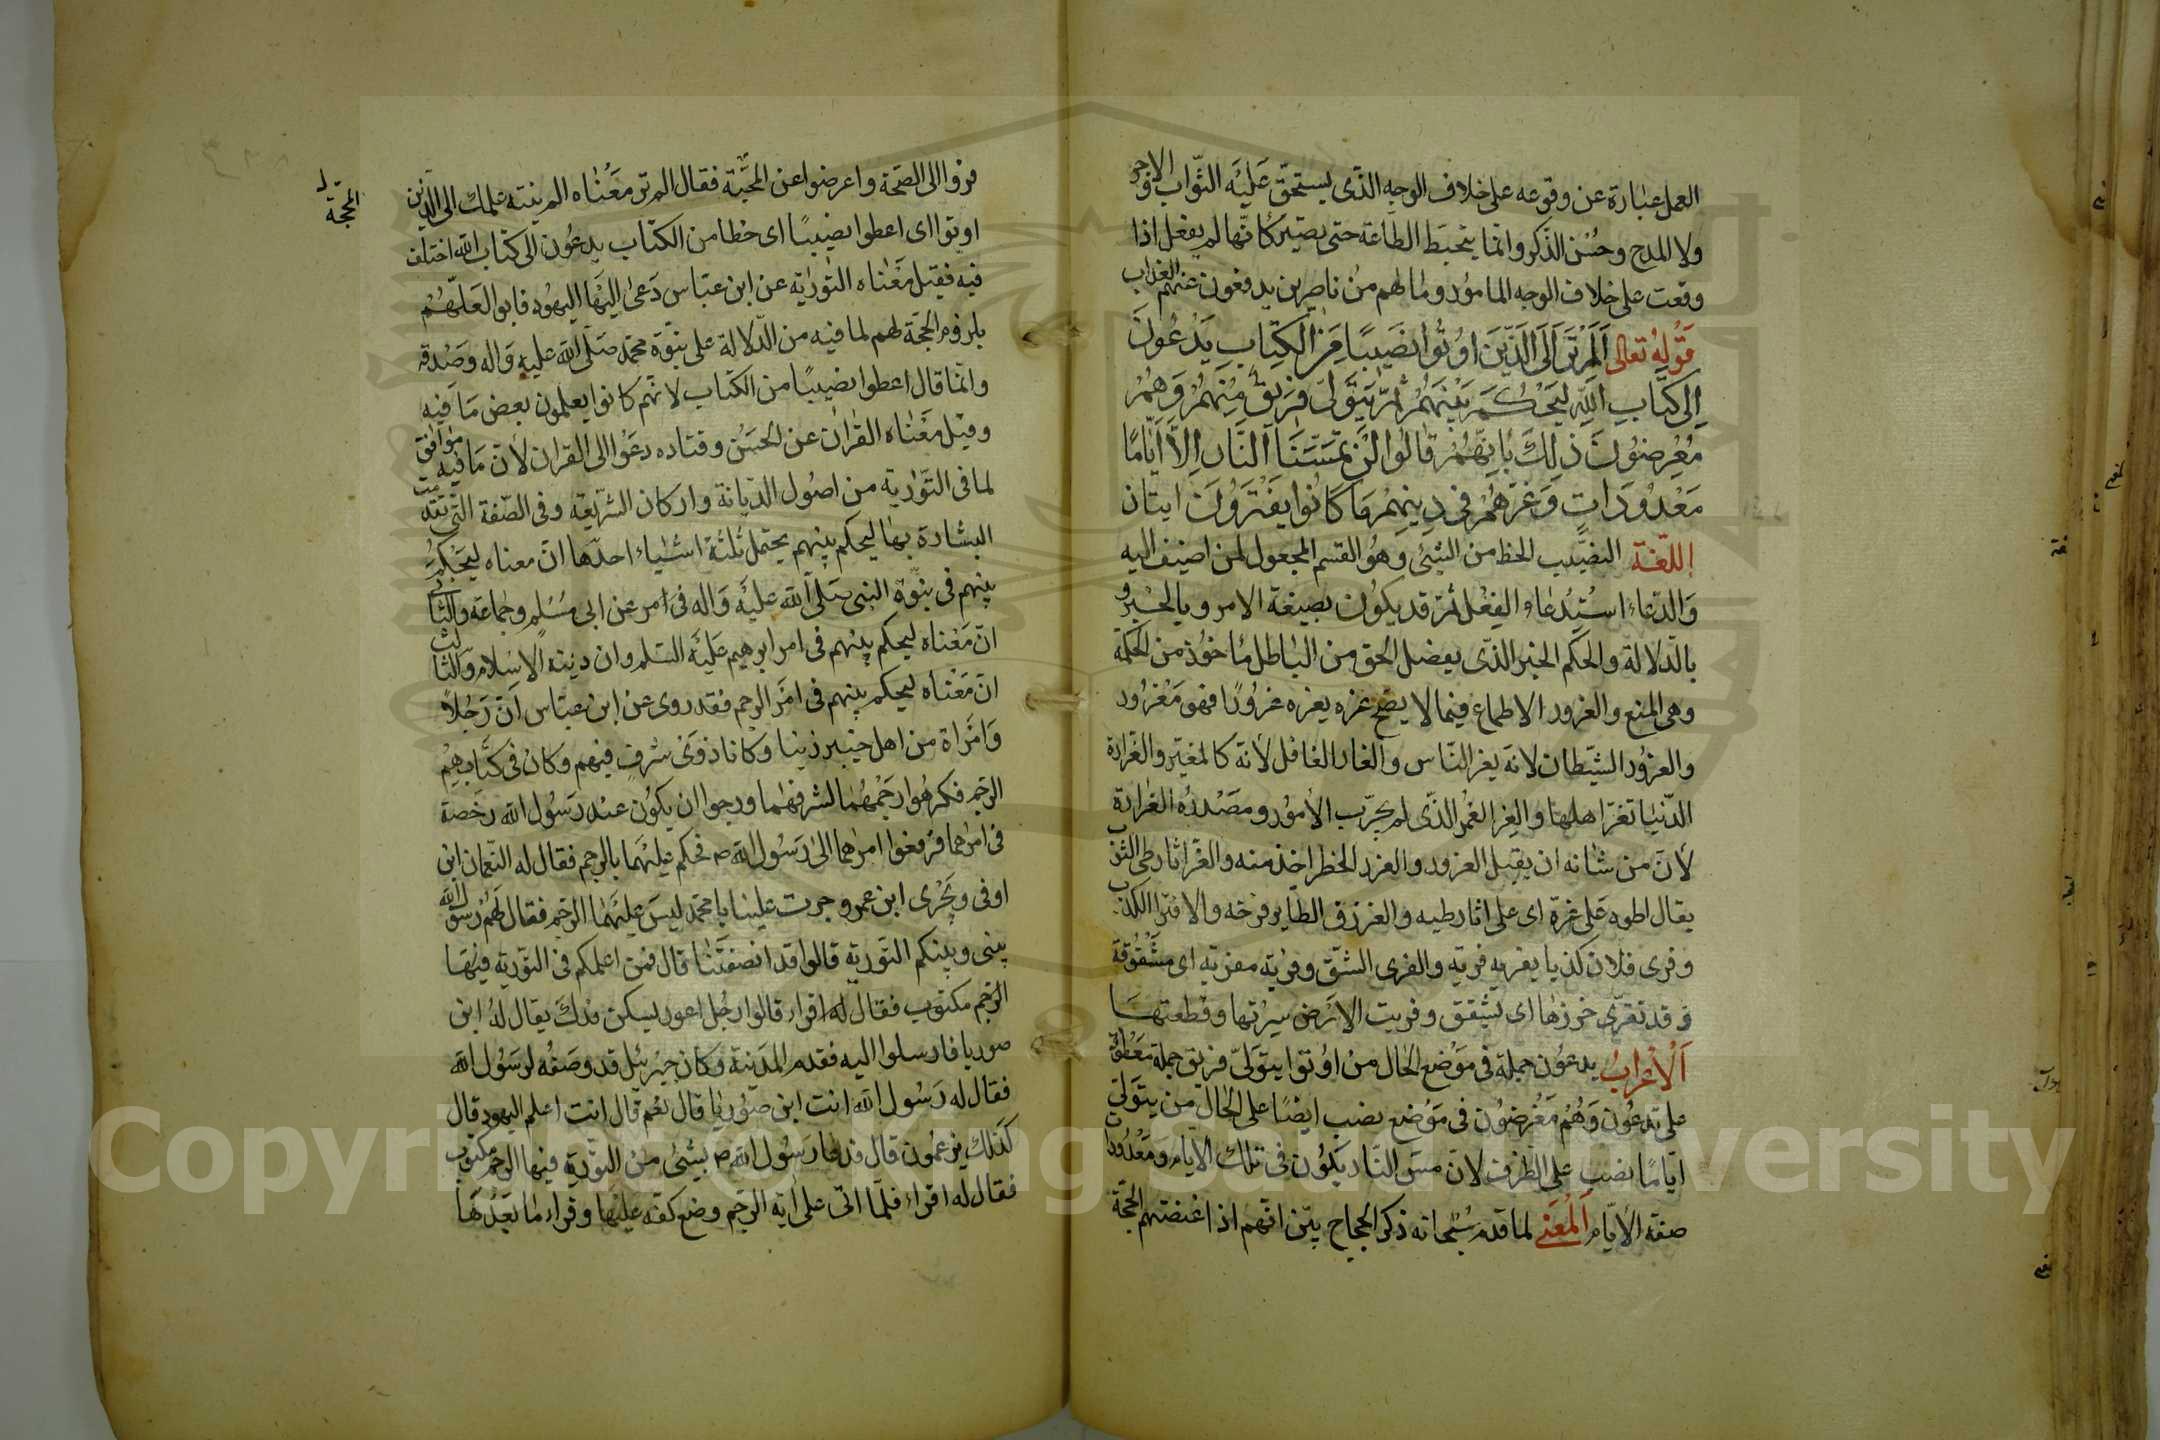 العمل عبارة عن وقوعه على خلاف الوجه الذى يستحق عليه الثواب والاجر
ولا المدح وحسن الذكر وانما يتحبط الطاعة حتى يصير كانها لم يفعل اذا
وقعت على خلاف الوجه المامور وما لهم من ناصرين يدفعون عنهم العذاب
قوله تعالى الم تر الى الذين اوتوا نصيبا من الكتاب يدعون
الى كتاب الله ليحكم بينهم ثم يتولى فريق منهم وهم
معرضون ذلك بانهم قالوا لن تمسنا النار الا اياما
معدودات وغرهم فى دينهم ما كانوا يفترون ايتان
اللغة النصيب الحظ من الشئ وهو القسم المجعول لمن اضيف اليه
والدعاء استدعاء الفعل ثم قد يكون بصيغة الامر وبالخبر و
بالدلالة والحكم الخبر الذى يفصل الحق من الباطل ماخوذ من الحكمة
وهى المنع والغرور الاطماع فيما لا يصح غره يغره غرورا فهو مغرور
والغرور الشيطان لانه يغر الناس والغار الغافل لانه كالمغتر والغرارة
الدنيا تغر اهلها والغر الغمر الذى لم يجرب الامور ومصدره الغرارة
لان من شانه ان يقبل الغرور والغرر الخطر اخذ منه والغر اثار طى الثوب
يقال اطوه على غره اى على اثار طيه والغر زق الطاير فرخه والافترا الكذب
وفرى فلان كذبا يفريه فرية والفرى الشق وفرية مفرية اى مشقوقة
وقد تفرى خرزها اى تشقق وفريت الارض سرتها وقطعتها
الاعراب يدعون جملة فى موضع الحال من اوتوا يتولى فريق جملة معطوفة
على يدعون وهم معرضون فى موضع نصب ايضا على الحال من يتولى
اياما نصب على الظرف لان مس النار يكون فى تلك الايام ومعدودات
صفة الايام المعنى لما قدم سبحانه ذكر الحجاج بين انهم اذا عضتهم الحجة
فروا الى الضجة واعرضوا عن المحجة فقال الم تر معناه الم ينته علمك الى الذين
المحجة
اوتوا اى اعطوا نصيبا اى حظا من الكتاب يدعون الى كتاب الله اختلف
فيه فقيل معناه التورية عن ابن عباس دعى اليها اليهود فابوا لعلمهم
بلزوم الحجة لهم لما فيه من الدلالة على نبوة محمد صلى الله عليه واله وصدقه
وانما قال اعطوا نصيبا من الكتاب لانهم كانوا يعلمون بعض ما فيه
وقيل معناه القران عن الحسن وقتاده دعوا الى القران لان ما فيه موافق
لما فى التورية من اصول الديانة واركان الشريعة وفى الصفة التى تقدمت
البشارة بها ليحكم بينهم يحتمل ثلثة اشياء احدها ان معناه ليحكم
بينهم فى نبوة النبى صلى الله عليه واله فى امر عن ابى مسلم وجماعة والثانى
ان معناه ليحكم بينهم فى امر ابرهيم عليه السلم وان دينه الاسلام والثالث
ان معناه ليحكم بينهم فى امر الرجم فقد روى عن ابن عباس ان رجلا
وامراة من اهل خيبر زنيا وكانا ذوى شرف فيهم وكان فى كتابهم
الرجم فكرهوا رجمهما لشرفهما ورجوا ان يكون عند رسول الله رخصة
فى امرهما فرفعوا امرهما الى رسول الله ص فحكم عليهما بالرجم فقال له النعمان ابن
اوفى وبحرى ابن عمرو جرت علينا يا محمد ليس عليهما الرجم فقال لهم رسول الله
بينى وبينكم التورية قالوا قد انصفتنا قال فمن اعلمكم فى التورية فيها
الرجم مكتوب فقال له اقراء قالوا رجل اعور يسكن فدك يقال له ابن
صوريا فارسلوا اليه فقدم المدينة وكان جبرئيل قد وصفه لرسول الله
فقال له رسول الله انت ابن صوريا قال نعم قال انت اعلم اليهود قال
كذلك يزعمون قال فدعا رسول الله ص بشئ من التورية فيها الرجم مكتوب
فقال له اقراء فلما اتى على اية الرجم وضع كفه عليها وقراء ما بعدها
Copyright © King Saud University